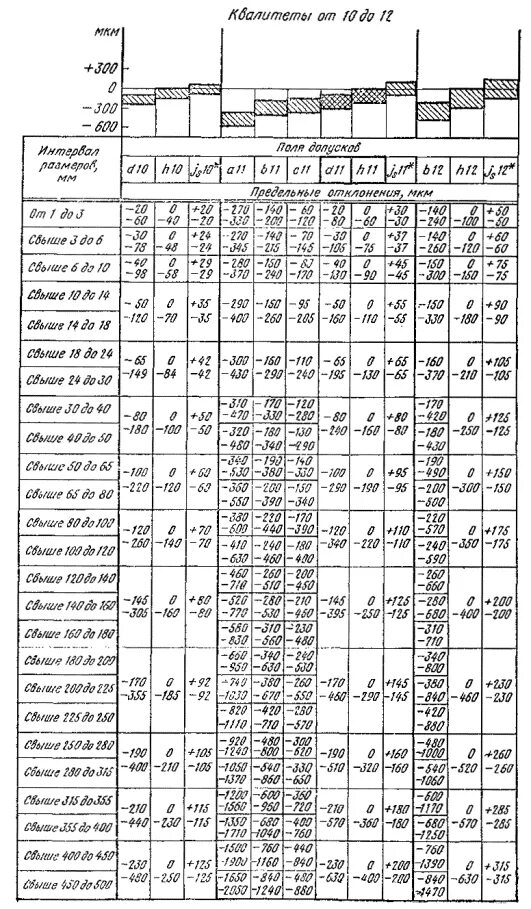 Квалитеты от 10 до 12
мкм
+300
0
−300
−600
Интервал размеров, мм
Поля допусков
d10 h10 js10* a11 b11 c11 d11 h11 js11* b12 h12 js12*
Предельные отклонения, мкм
От 1 до 3
−20 0 +20 −270 −140 −60 −20 0 +30 −140 0 +50
−60 −40 −20 −330 −200 −120 −80 −60 −30 −240 −100 −50
Свыше 3 до 6
−30 0 +24 −270 −140 −70 −30 0 +37 −140 0 +60
−78 −48 −24 −345 −215 −145 −105 −75 −37 −260 −120 −60
Свыше 6 до 10
−40 0 +29 −280 −150 −80 −40 0 +45 −150 0 +75
−98 −58 −29 −370 −240 −170 −130 −90 −45 −300 −150 −75
Свыше 10 до 14
−50 0 +35 −290 −150 −95 −50 0 +55 −150 0 +90
−120 −70 −35 −400 −260 −205 −160 −110 −55 −330 −180 −90
Свыше 14 до 18
Свыше 18 до 24
−65 0 +42 −300 −160 −110 −65 0 +65 −160 0 +105
−149 −84 −42 −430 −290 −240 −195 −130 −65 −370 −210 −105
Свыше 24 до 30
Свыше 30 до 40
−310 −170 −120 −170
−470 −330 −280 −420
−80 0 +50 −80 0 +80 0 +125
−180 −100 −50 −240 −160 −80 −250 −125
Свыше 40 до 50
−320 −180 −130 −180
−480 −340 −290 −430
Свыше 50 до 65
−340 −190 −140 −190
−530 −380 −330 −490
−100 0 +60 −100 0 +95 0 +150
−220 −120 −60 −290 −190 −95 −300 −150
Свыше 65 до 80
−360 −200 −150 −200
−550 −390 −340 −500
Свыше 80 до 100
−380 −220 −170 −220
−600 −440 −390 −570
−120 0 +70 −120 0 +110 0 +175
−260 −140 −70 −340 −220 −110 −350 −175
Свыше 100 до 120
−410 −240 −180 −240
−630 −460 −400 −590
Свыше 120 до 140
−460 −260 −200 −260
−710 −510 −450 −660
Свыше 140 до 160
−145 0 +80 −520 −280 −210 −145 0 +125 −280 0 +200
−305 −160 −80 −770 −530 −460 −395 −250 −125 −680 −400 −200
Свыше 160 до 180
−580 −310 −230 −310
−830 −560 −480 −710
Свыше 180 до 200
−660 −340 −240 −340
−950 −630 −530 −800
Свыше 200 до 225
−170 0 +92 −740 −380 −260 −170 0 +145 −380 0 +230
−355 −185 −92 −1030 −670 −550 −460 −290 −145 −840 −460 −230
Свыше 225 до 250
−820 −420 −280 −420
−1110 −710 −570 −880
Свыше 250 до 280
−920 −480 −300 −480
−1240 −800 −620 −1000
−190 0 +105 −190 0 +160 0 +260
−400 −210 −105 −510 −320 −160 −520 −260
Свыше 280 до 315
−1050 −540 −330 −540
−1370 −860 −650 −1060
Свыше 315 до 355
−1200 −600 −360 −600
−1560 −960 −720 −1170
−210 0 +115 −210 0 +180 0 +285
−440 −230 −115 −570 −360 −180 −570 −285
Свыше 355 до 400
−1350 −680 −400 −680
−1710 −1040 −760 −1250
Свыше 400 до 450
−1500 −760 −440 −760
−1900 −1160 −840 −1390
−230 0 +125 −230 0 +200 0 +315
−480 −250 −125 −630 −400 −200 −630 −315
Свыше 450 до 500
−1650 −840 −480 −840
−2050 −1240 −880 −1470